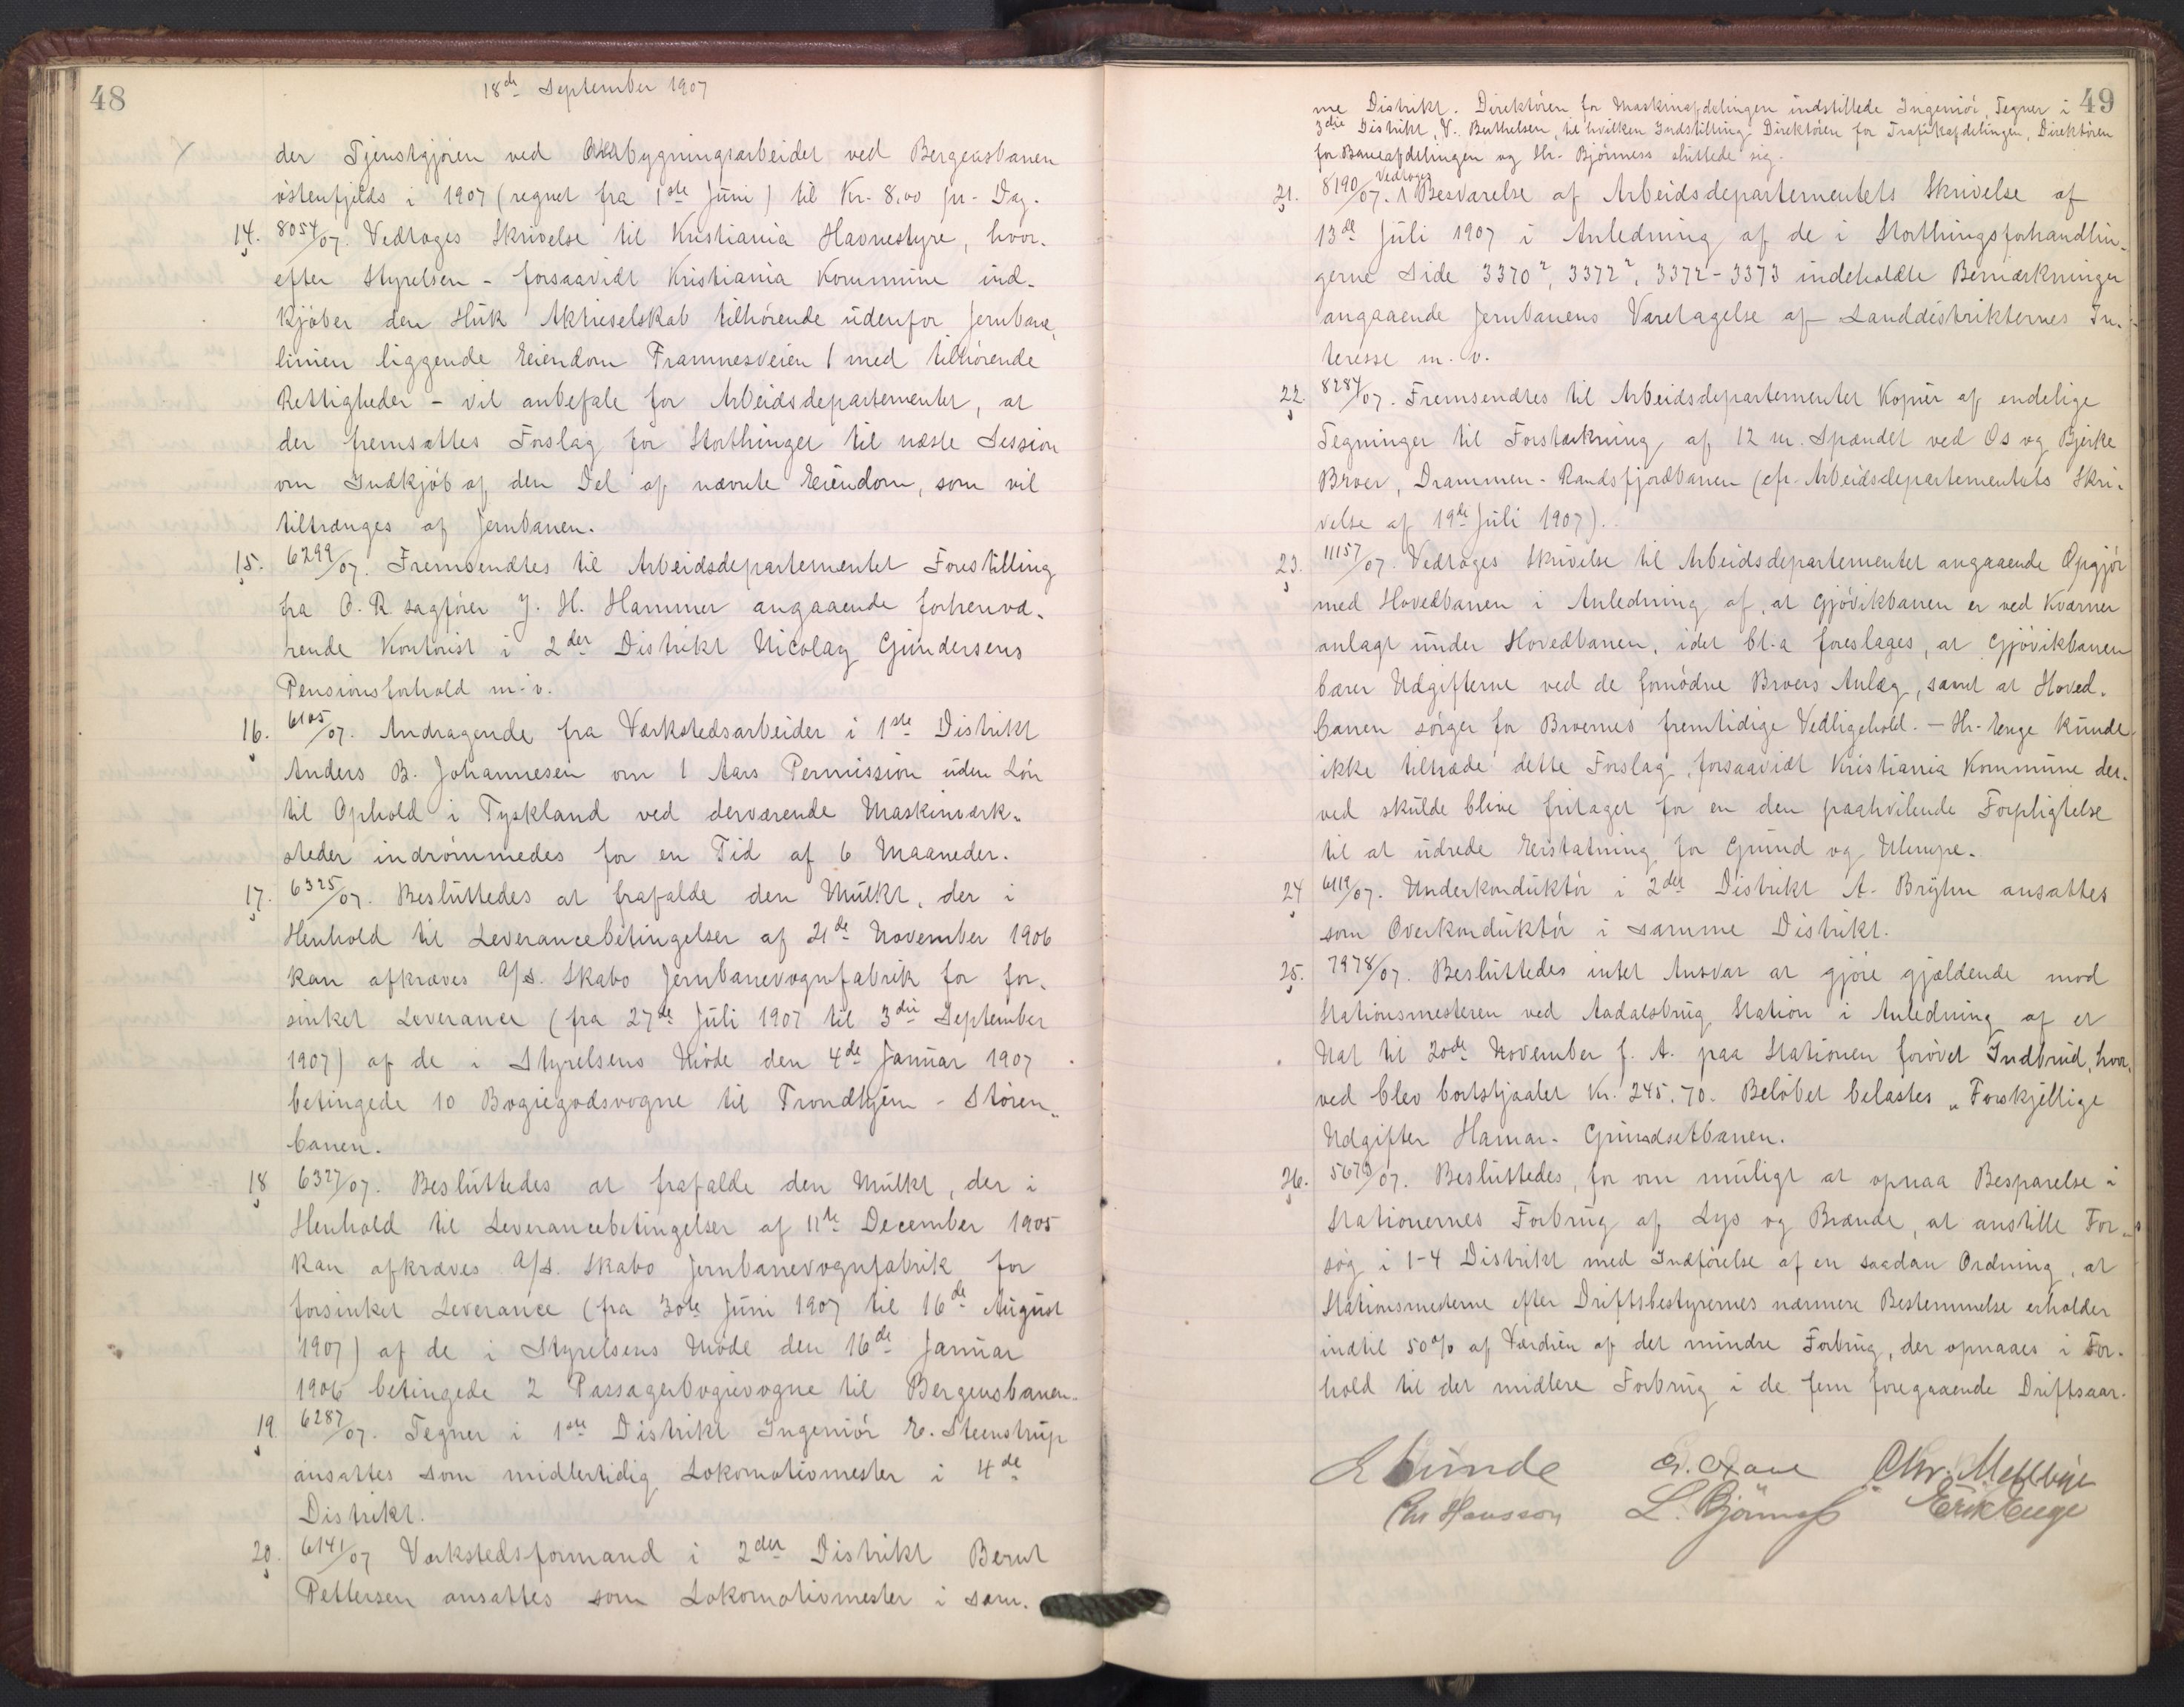 48
18de September 1907
der Tjenstgjøren ved Overbygningsarbeidet ved Bergensbanen
østenfjelds i 1907 (regnet fra 1ste Juni) til Kr. 8,00 pr. Dag.
14. 8054/07. Vedtoges Skrivelse til Kristiania Havnestyre, hvor-
efter Styrelsen - forsaavidt Kristiania Kommune ind-
kjøber den Huk Aktieselskab tilhørende udenfor Jernbane-
linien liggende Eiendom Framnesveien 1 med tilhørende
Rettigheder - vil anbefale for Arbeidsdepartementet, at
der fremsættes Forslag for Storthinget til næste Session
om Indkjøb af den Del af nævnte Eiendom, som vil
tiltrænges af Jernbanen.
15. 6299/07. Fremsendtes til Arbeidsdepartementet Forestilling
fra O. R sagfører J. H. Hammer angaaende forhenvæ-
rende Kontorist i 2det Distrikt Nicolay Gundersens
Pensionsforhold m. v.
16. 6105/07. Andragende fra Værkstedsarbeider i 1ste Distrikt
Anders B. Johannesen om 1 Aars Permission uden Løn
til Ophold i Tyskland ved derværende Maskinværk-
steder indrømmedes for en Tid af 6 Maaneder.
17. 6325/07. Besluttedes at frafalde den Mulkt, der i
Henhold til Leverancebetingelser af 21de November 1906
kan afkræves A/S. Skabo Jernbanevognfabrik for for-
sinket Leverance (fra 27de Juli 1907 til 3die September
1907) af de i Styrelsens Møde den 4de Januar 1907
betingede 10 Bogiegodsvogne til Trondhjem - Støren-
banen.
18 6327/07. Besluttedes at frafalde den Mulkt, der i
Henhold til Leverancebetingelser af 11te December 1905
kan afkræves A/S. Skabo Jernbanevognfabrik for
forsinket Leverance (fra 30te Juni 1907 til 16de August
1907) af de i Styrelsens Møde den 16de Januar
1906 betingede 2 Passagerbogievogne til Bergensbanen.
19. 6287/07. Tegner i 1ste Distrikt Ingeniør E. Steenstrup
ansattes som midlertidig Lokomotivmester i 4de
Distrikt.
20. 6141/07 Værkstedsformand i 2det Distrikt Bernt
Pettersen ansattes som Lokomotivmester i sam-
49
me Distrikt. Direktøren for Maskinafdelingen indstillede Ingeniør, Tegner i
3die Distrikt, V. Berthelsen, til hvilken Indstilling Direktøren for Trafikafdelingen, Direktøren
for Baneafdelingen og Hr. Bjørness sluttede sig.
Vedtoges
21. 8190/07. Besvarelse af Arbeidsdepartementets Skrivelse af
13de Juli 1907 i Anledning af de i Storthingsforhandlin-
gerne Side 3370², 3372², 3372-3373 indeholdte Bemærkninger
angaaende Jernbanens Varetagelse af Landdistrikternes In-
teresse m. v.
22. 8284/07. Fremsendtes til Arbeidsdepartementet Kopier af endelige
Tegninger til Forstærkning af 12 m. Spændet ved Os og Bjerke
Broer, Drammen - Randsfjordbanen (cfr. Arbeidsdepartementets Skri-
velse af 19de Juli 1907).
23. 11157/07. Vedtoges Skrivelse til Arbeidsdepartementet angaaende Opgjør
med Hovedbanen i Anledning af, at Gjøvikbanen er ved Kværner
anlagt under Hovedbanen, idet bl. a foreslages, at Gjøvikbanen
bærer Udgifterne ved de fornødne Broers Anlæg, samt at Hoved-
banen sørger for Broernes fremtidige Vedligehold. - Hr. Enge kunde
ikke tiltræde dette Forslag, forsaavidt Kristiania Kommune der-
ved skulde blive fritaget for en den paahvilende Forpligtelse
til at udrede Erstatning for Grund og Ulempe.
24 6119/07. Underkonduktør i 2det Distrikt A. Bryhn ansattes
som Overkonduktør i samme Distrikt.
25. 7978/07. Besluttedes intet Ansvar at gjøre gjældende mod
Stationsmesteren ved Aadalsbrug Station i Anledning af et
Nat til 20de November f. A. paa Stationen forøvet Indbrud, hvor-
ved blev bortstjaalet Kr. 245.70. Beløbet belastes „Forskjellige
Udgifter Hamar - Grundsetbanen.
26. 5673/07. Besluttedes, for om muligt at opnaa Besparelse i
Stationernes Forbrug af Lys og Brænde, at anstille For-
søg i 1-4 Distrikt med Indførelse af en saadan Ordning, at
Stationsmesterne efter Driftsbestyrernes nærmere Bestemmelse erholder
indtil 50% af Værdien af det mindre Forbrug, der opnaaes i For-
hold til det midlere Forbrug i de fem foregaaende Driftsaar.
E Sunde Chr. Mellbye
Chr Hansson L. Bjørness Erik Enge